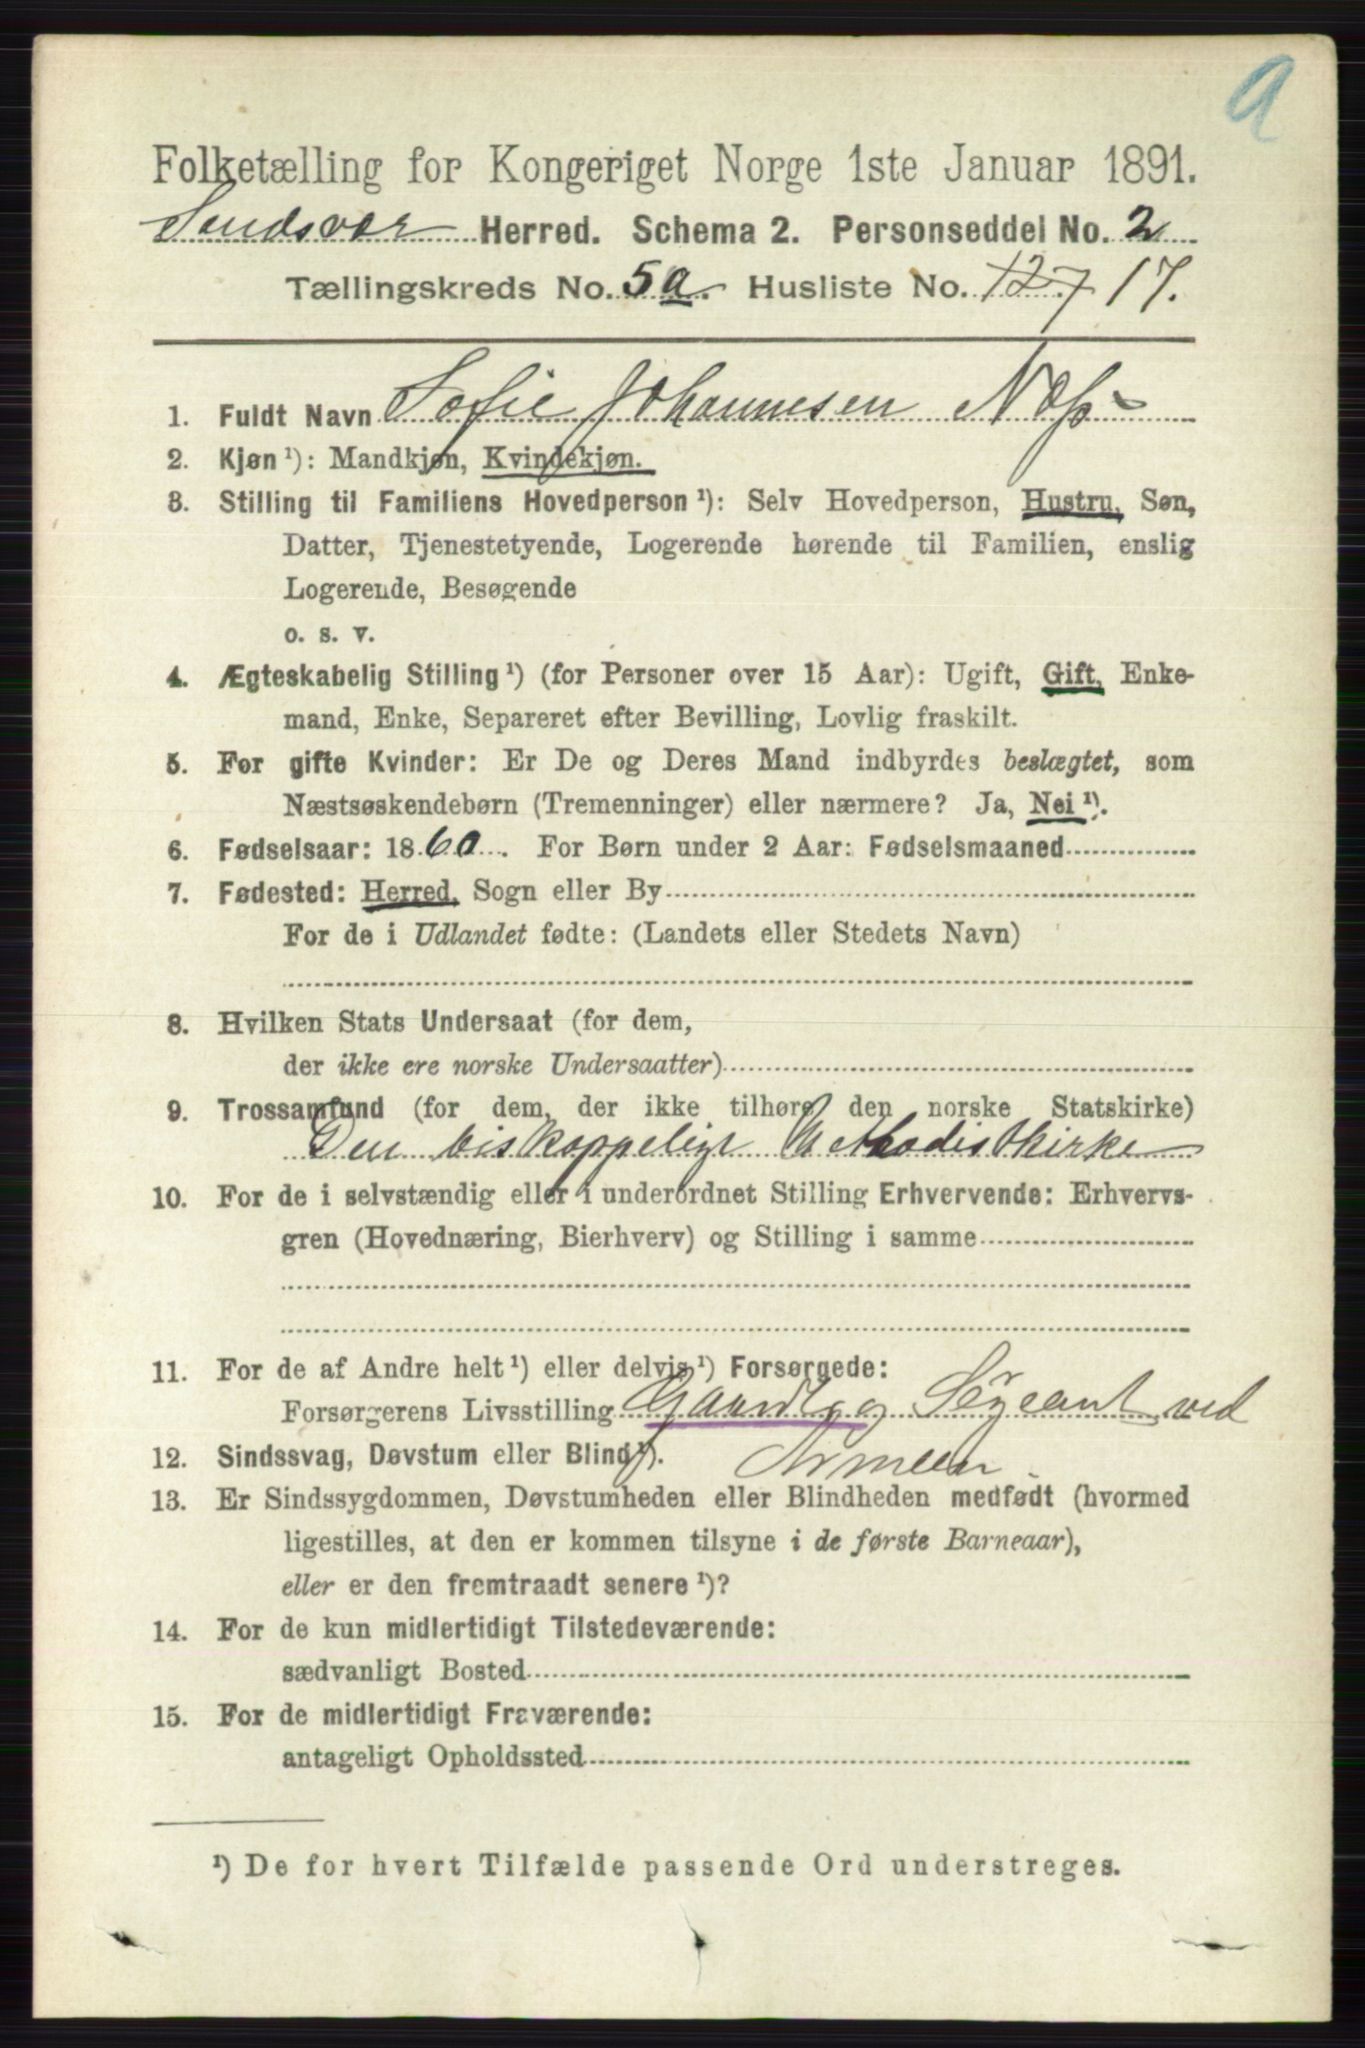 a
Folketælling for Kongeriget Norge 1ste Januar 1891.
Sandsvær Herred. Schema 2. Personseddel No. 2
Tællingskreds No. 5a. Husliste No. 127 17.
1. Fuldt Navn Sofie Johannesen Næss
2. Kjøn ¹): Mandkjøn, Kvindekjøn.
3. Stilling til Familiens Hovedperson ¹): Selv Hovedperson, Hustru, Søn,
Datter, Tjenestetyende, Logerende hørende til Familien, enslig
Logerende, Besøgende
o. s. v.
4. Ægteskabelig Stilling ¹) (for Personer over 15 Aar): Ugift, Gift, Enke-
mand, Enke, Separeret efter Bevilling, Lovlig fraskilt.
5. For gifte Kvinder: Er De og Deres Mand indbyrdes beslægtet, som
Næstsøskendebørn (Tremenninger) eller nærmere? Ja, Nei ¹).
6. Fødselsaar: 1860. For Børn under 2 Aar: Fødselsmaaned
7. Fødested: Herred, Sogn eller By
For de i Udlandet fødte: (Landets eller Stedets Navn)
8. Hvilken Stats Undersaat (for dem,
der ikke ere norske Undersaatter)
9. Trossamfund (for dem, der ikke tilhøre den norske Statskirke)
Den biskoppeligt Methodistkirke
10. For de i selvstændig eller i underordnet Stilling Erhvervende: Erhvervs-
gren (Hovednæring, Bierhverv) og Stilling i samme
11. For de af Andre helt ¹) eller delvis ¹) Forsørgede:
Forsørgerens Livsstilling og Sergeant ved
12. Sindssvag, Døvstum eller Blind ¹). Armeen.
13. Er Sindssygdommen, Døvstumheden eller Blindheden medfødt (hvormed
ligestilles, at den er kommen tilsyne i de første Barneaar),
eller er den fremtraadt senere ¹)?
14. For de kun midlertidigt Tilstedeværende:
sædvanligt Bosted
15. For de midlertidigt Fraværende:
antageligt Opholdssted
¹) De for hvert Tilfælde passende Ord understreges.